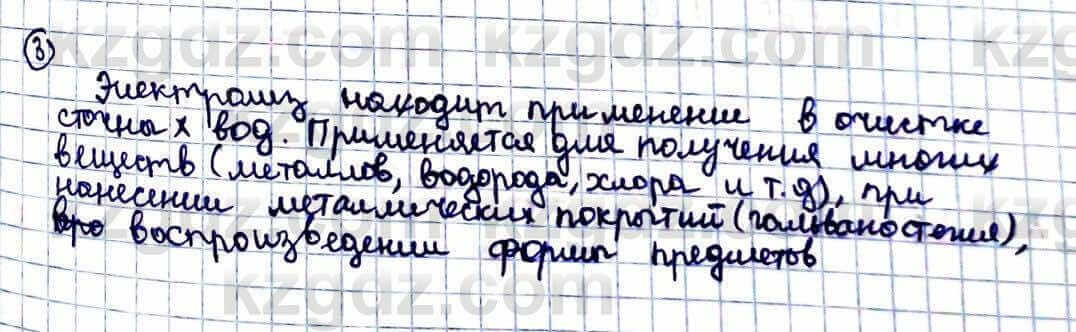 3
Электролиз находит применение в очистке
сточных вод. Применяется для получения многих
веществ (металлов, водорода, хлора и т.д), при
нанесении металлических покрытий (гальваностегия),
воспроизведении формы предметов
kzgdz.com kzgdz.com
kzgdz.com
kzgdz.com